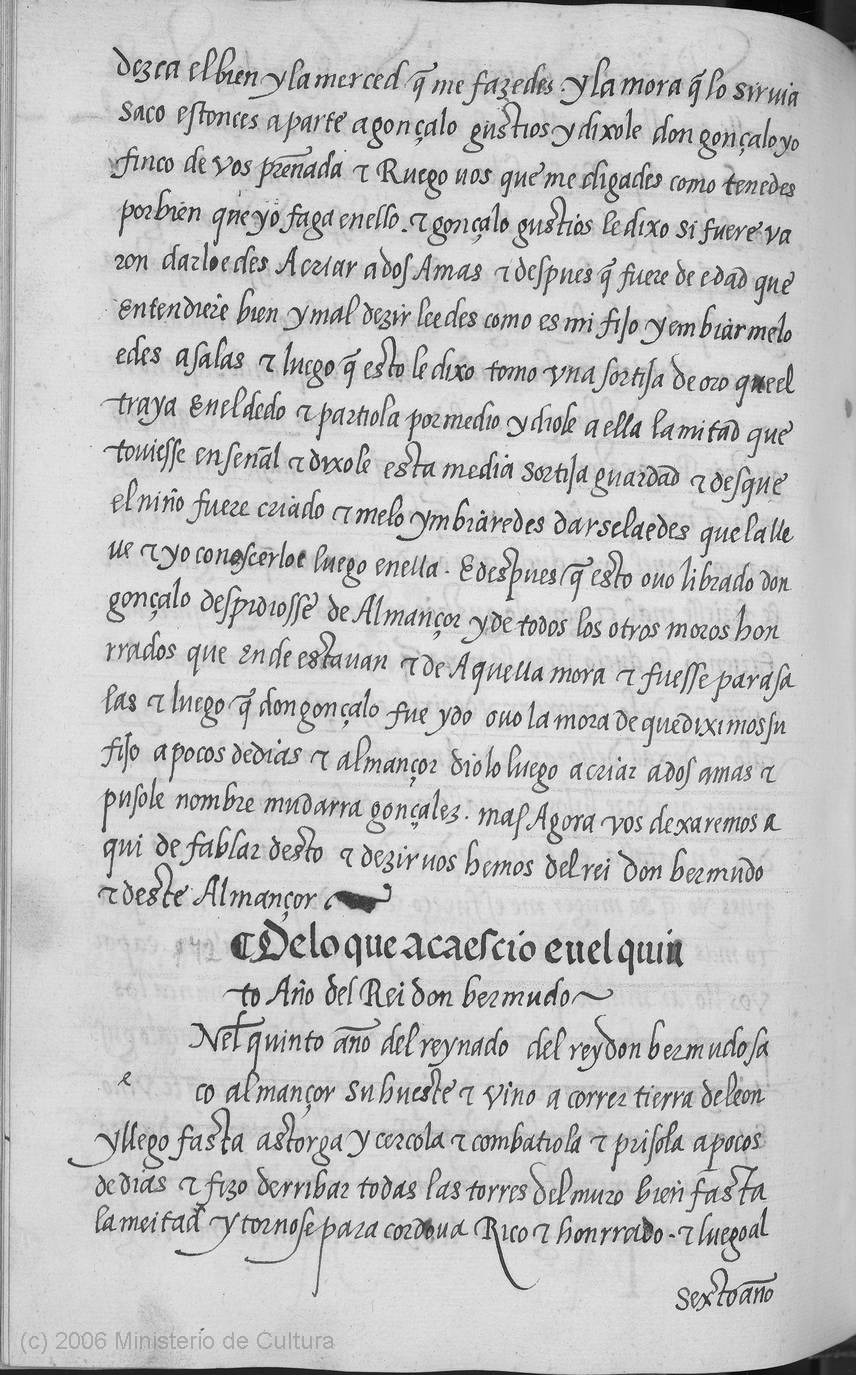 dezca el bien y la merced q̃ me fazedes · y la mora q̃ lo siruia
saco estonces aparte a gonçalo gustios y dixole don gonçalo yo
finco de vos preñada τ Ruego uos que me digades como tenedes
por bien que yo faga enello . τ gonçalo gustios le dixo si fuere va
ron darloedes A criar a dos Amas τ despues q̃ fuere de edad que
Entendiere bien y mal dezir leedes como es mi fijo y embiarmelo
edes a salas τ luego q̃ esto le dixo tomo vna sortija de oro que el
traya En el dedo τ partiola por medio y diole a ella la mitad que
touiesse en señal τ dixole esta media sortija guardad τ desque
el niño fuere criado τ melo ymbiaredes darselaedes que la lle
ue τ yo conoscerloe luego enella . E despues q̃ esto ouo librado don
gonçalo despidiosse de Almançor y de todos los otros moros hon
rrados que Ende estauan τ de Aquella mora τ fuesse para sa
las τ luego q̃ don gonçalo fue ydo ouo la mora de que diximos su
fijo a pocos de dias τ almançor diolo luego a criar a dos amas τ
pusole nombre mudarra gonçalez . mas Agora vos dexaremos a
qui de fablar desto τ dezir uos hemos del rei don bermudo
τ deste Almançor
De lo que acaescio en el quin
to Año del Rei don bermudo
Nel quinto año del reynado del rey don bermudo sa
e
co almançor su hueste τ vino a correr tierra de leon
y llego fasta astorga y cercola τ combatiola τ prisola a pocos
de dias τ fizo derribar todas las torres del muro bien fasta
la meitad y tornose para cordoua Rico τ honrrado . τ luego al
sexto año
(c) 2006 Ministerio de Cultura